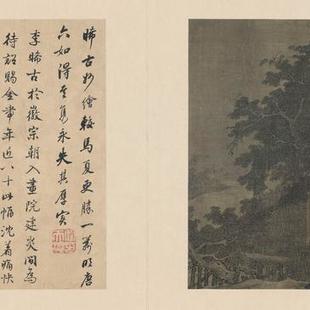 晞古妙繪較馬夏更勝一籌明唐
六如得其雋永失其厚實
李晞古於徽宗朝入畫院建炎間為
待詔賜金帶年近八十此幀沈着痛快